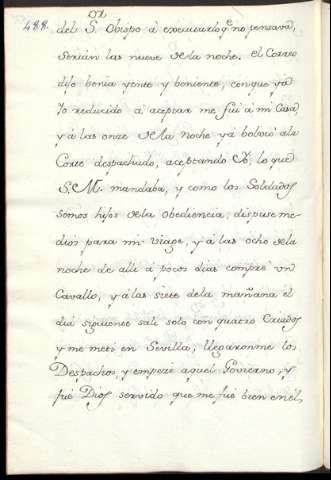 488.
del S. Obispo á executarlo q.e no pensava,
Serían las nueve de la noche, el Correo
dijo benía yente y beniente, conque yá
Yo reducido á aceptar me fuí á mi Casa,
y á las onze de la noche yá bolvió á la
Corte despachado, aceptando Yo, lo que
S. M. mandaba, y como los Soldados
somos hijos de la obediencia, dispuse me-
dios para mi viage, y á las ocho de la
noche de allí á pocos dias compré vn
Cavallo, y á las siete de la mañana el
día siguiente salí solo con quatro Criados
y me metí en Sevilla, llegaronme los
Despachos, y empezé aquel Govierno, y
fué Dios servido que me fué bien en él,